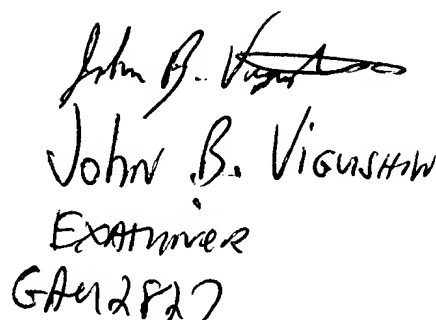 John B. Vigushin
JOHN B. VIGUSHIN
EXAMINER
GAU 2827